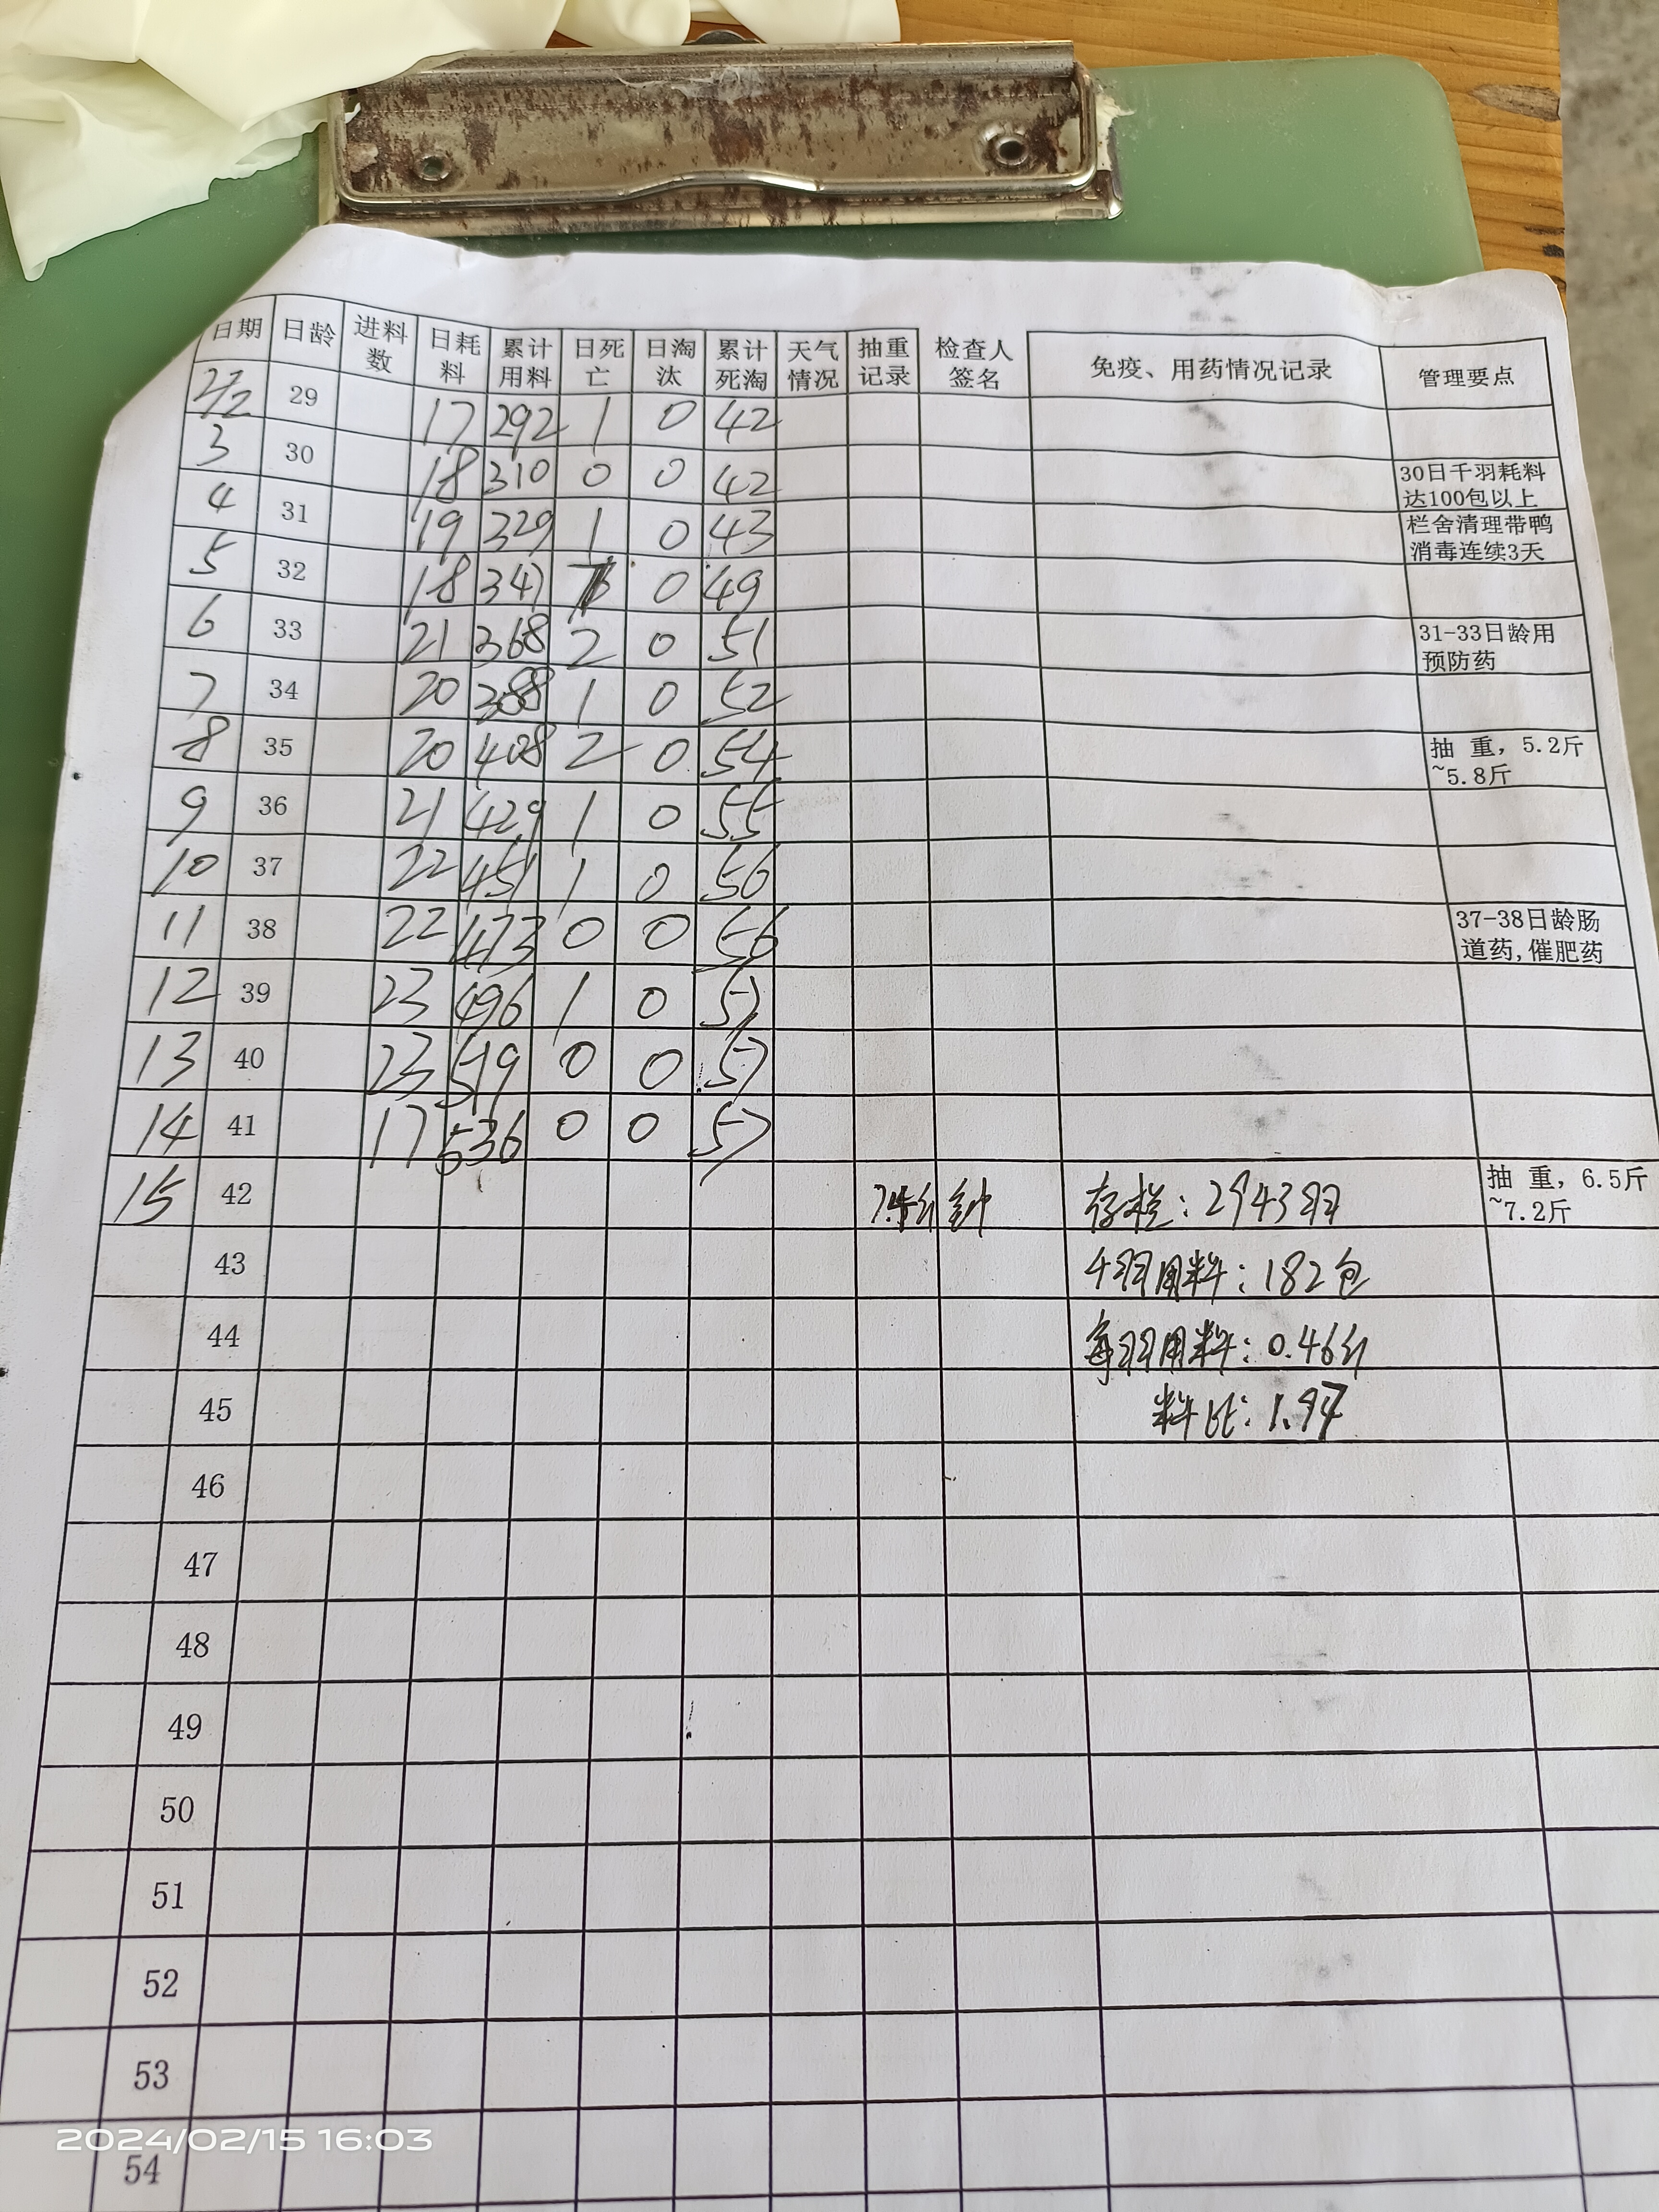 日期 日龄 进料数 日耗料 累计用料 日死亡 日淘汰 累计死淘 天气情况 抽重记录 检查人签名 免疫、用药情况记录 管理要点
2/2 29 17 292 1 0 42
3 30 18 310 0 0 42 30日千羽耗料达100包以上
4 31 19 329 1 0 43 栏舍清理带鸭消毒连续3天
5 32 18 347 0 49
6 33 21 368 2 0 51 31-33日龄用预防药
7 34 20 388 1 0 52
8 35 20 408 2 0 54 抽 重, 5.2斤~5.8斤
9 36 21 429 1 0 55
10 37 22 451 1 0 56
11 38 22 473 0 0 56 37-38日龄肠道药,催肥药
12 39 23 496 1 0 57
13 40 23 519 0 0 57
14 41 17 536 0 0 57
15 42 存栏:2943羽 抽 重, 6.5斤~7.2斤
43 千羽用料:182包
44 每羽用料:0.46斤
45 料比:1.97
46
47
48
49
50
51
52
53
54
2024/02/15 16:03